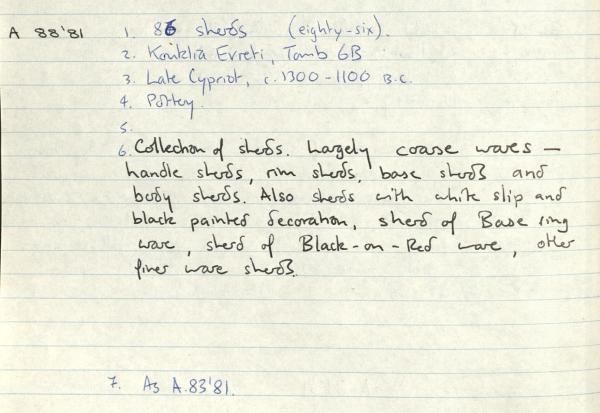 A 88'81 1. 86 sherds (eighty-six).
2. Kouklia Evreti, Tomb 6B
3. Late Cypriot, c.1300-1100 B.C.
4. Pottery.
5.
6. Collection of sherds. Largely coarse wares –
handle sherds, rim sherds, base sherds and
body sherds. Also sherds with white slip and
black painted decoration, sherd of Base ring
ware, sherd of Black-on-Red ware, other
finer ware sherds.
7. As A.83'81.